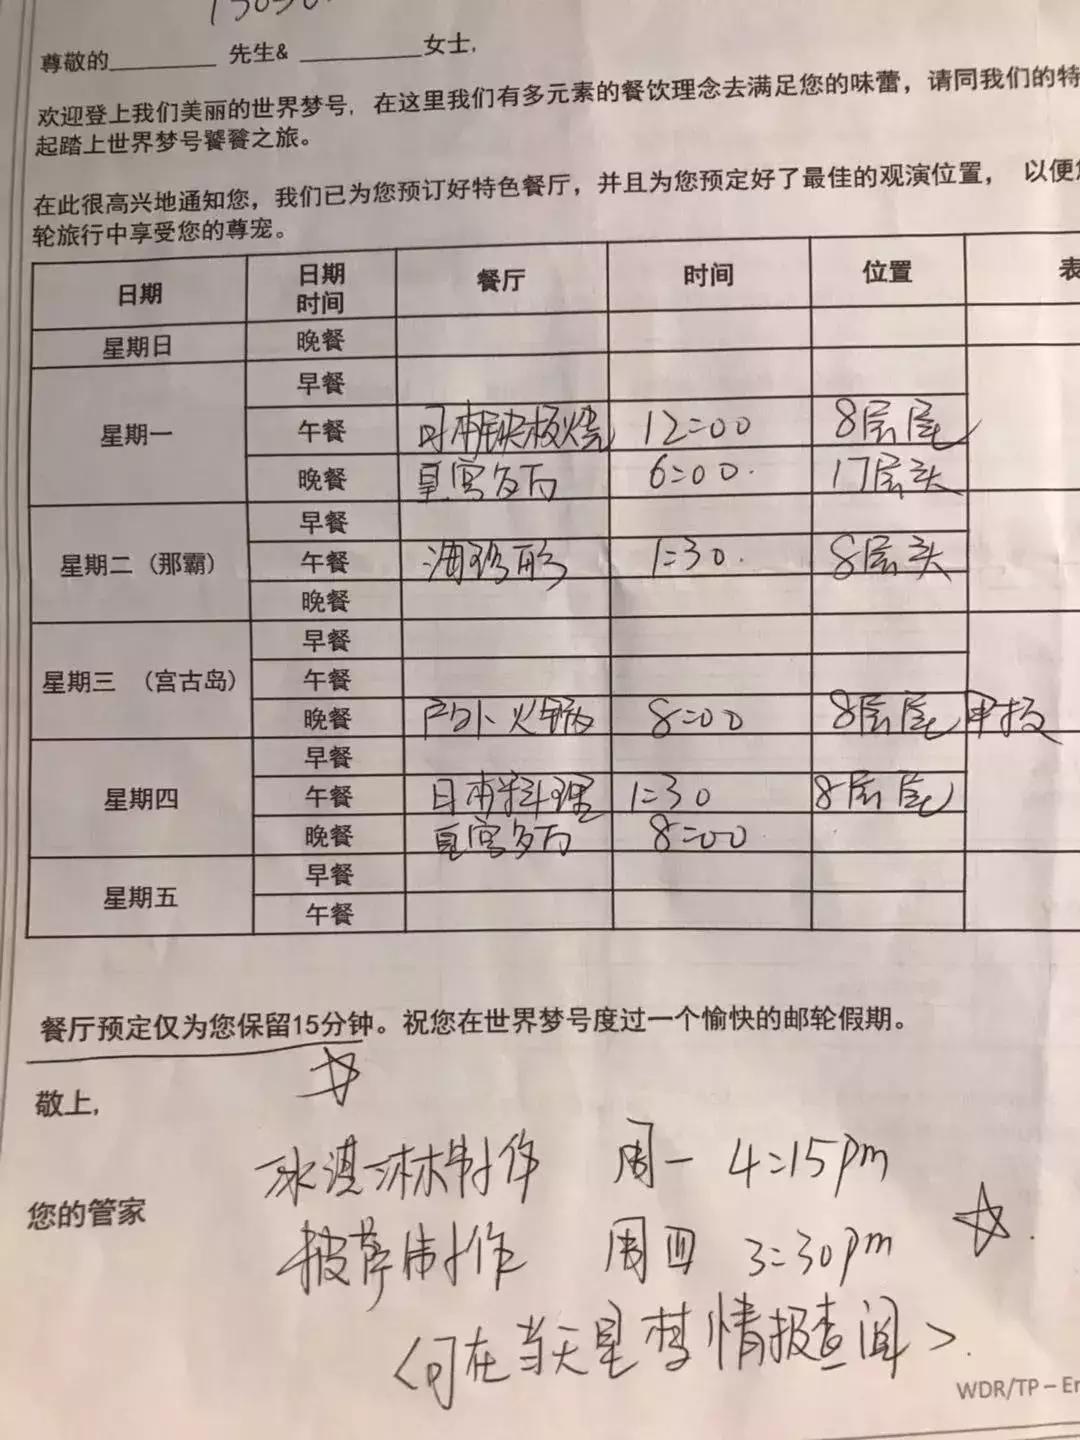 尊敬的________ 先生& ________女士,
欢迎登上我们美丽的世界梦号, 在这里我们有多元素的餐饮理念去满足您的味蕾，请同我们的特
起踏上世界梦号饕餮之旅。
在此很高兴地通知您，我们已为您预订好特色餐厅，并且为您预定好了最佳的观演位置， 以便
轮旅行中享受您的尊宠。
日期 日期时间 餐厅 时间 位置 表
星期日 晚餐
星期一 早餐
午餐 日本铁板烧 12:00 8层尾
晚餐 6:00. 17层头
星期二（那霸） 早餐
午餐 海 1:30. 8层头
晚餐
星期三 （宫古岛） 早餐
午餐
晚餐 户外火锅 8:00 8层尾甲板
星期四 早餐
午餐 日本料理 1:30 8层尾
晚餐 8:00
星期五 早餐
午餐
餐厅预定仅为您保留15分钟。祝您在世界梦号度过一个愉快的邮轮假期。
敬上,
冰淇淋制作 周一 4:15pm
您的管家
披萨制作 周四 3:30pm
<可在当天星梦情报查阅>.
WDR/TP – En